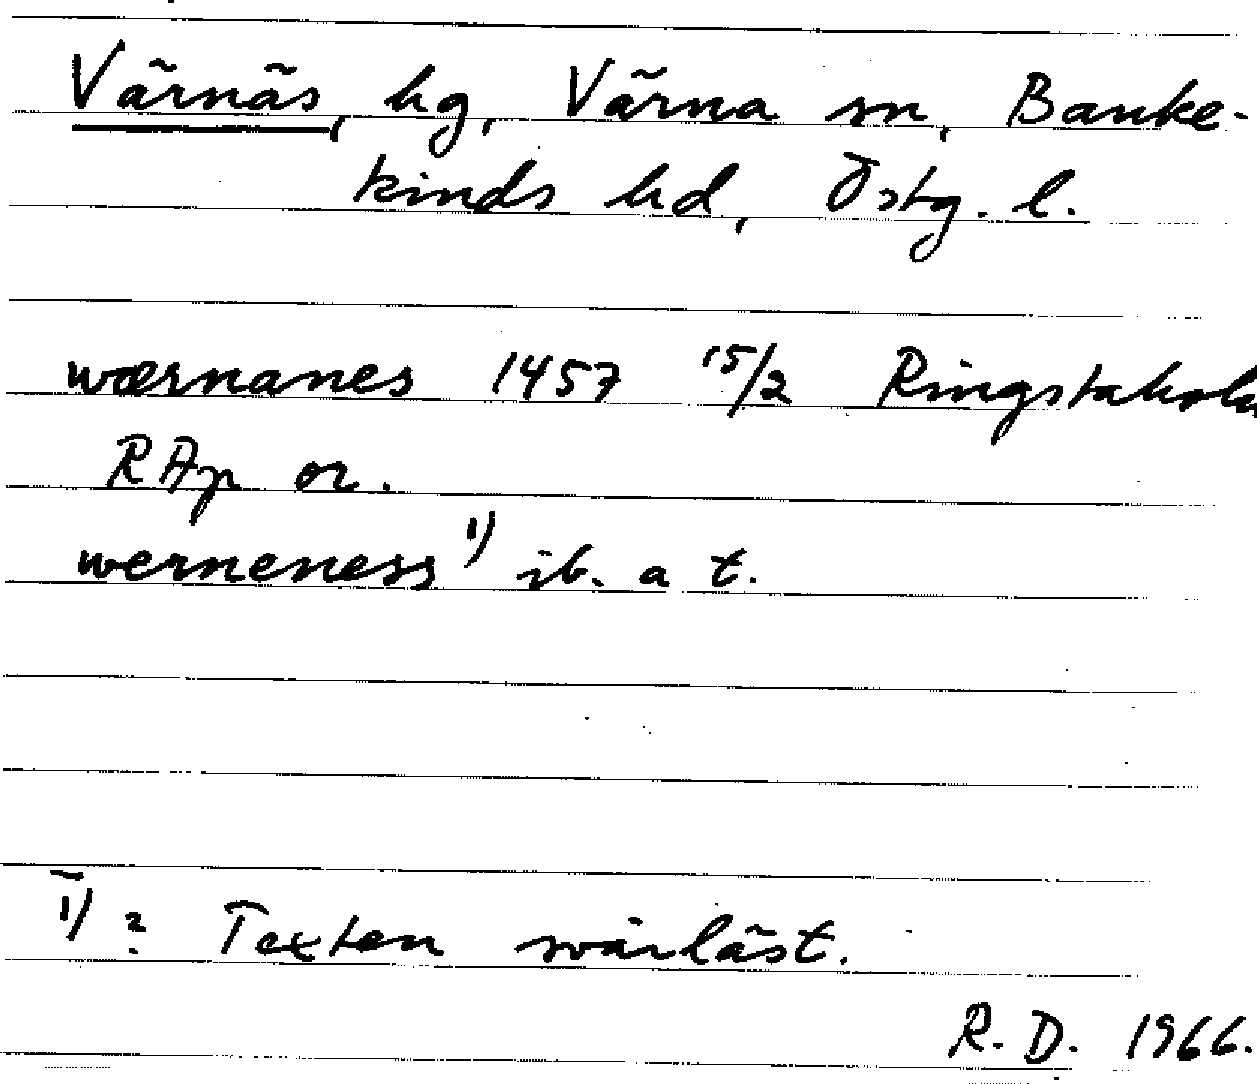 Värnäs, hg, Värna sn, Banke-
kinds hd, Östg. l.
wærnanes 1457 15/2 Ringstaholm
RAp or.
werneness 1) ib. a t.
1) ? Texten svårläst.
R. D. 1966.